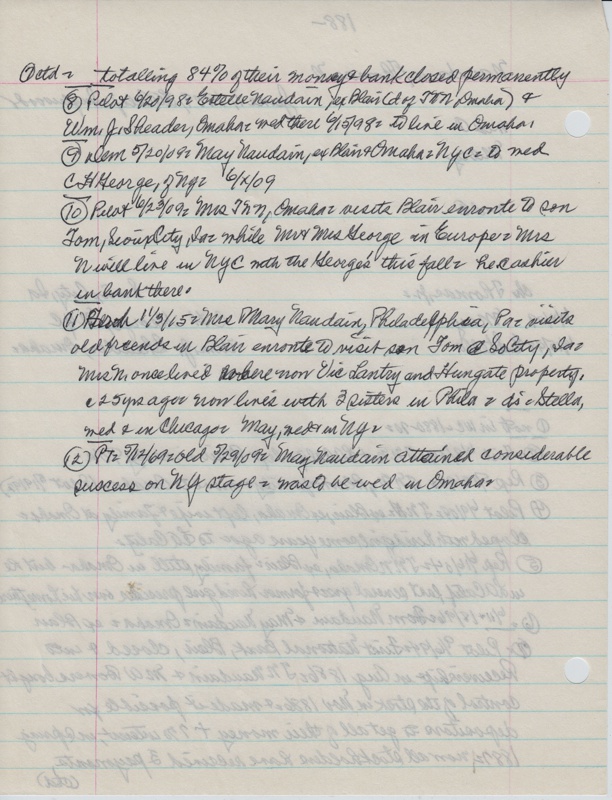 totalling 84% of their money & bank closed permanently
(8) Pilot 6/20/98 = Estelle Naudain, ex Blair (d of TNN, Omaha) &
Wm. J. Shrader, Omaha = med there 6/15/98 = to live in Omaha.
(9) Dem 5/20/09 = May Naudain, ex Blair & Omaha = NYC = to med
C H George, of NY = 6/x/09
(10) Pilot 6/23/09 = Mrs TNN, Omaha = visits Blair enroute to son
Tom, Sioux City, Ia = while Mr & Mrs George in Europe = Mrs
N will live in NYC with the Georges this fall = he cashier
in bank there.
(11) 11/3/15 = Mrs Mary Naudain, Philadelphia, Pa = visits
old friends in Blair enroute to visit son Tom @ So City, Ia =
Mrs N once lived where now Vic Lantry and Hungate property.
c 25 yrs ago = now lives with 3 sisters in Phila = di = Stella,
med & in Chicago = May, med & in NY =
(12) PT = 5/ /09 = old 5/29/09 = May Naudain attained considerable
success on NY stage = was to be wed in Omaha =